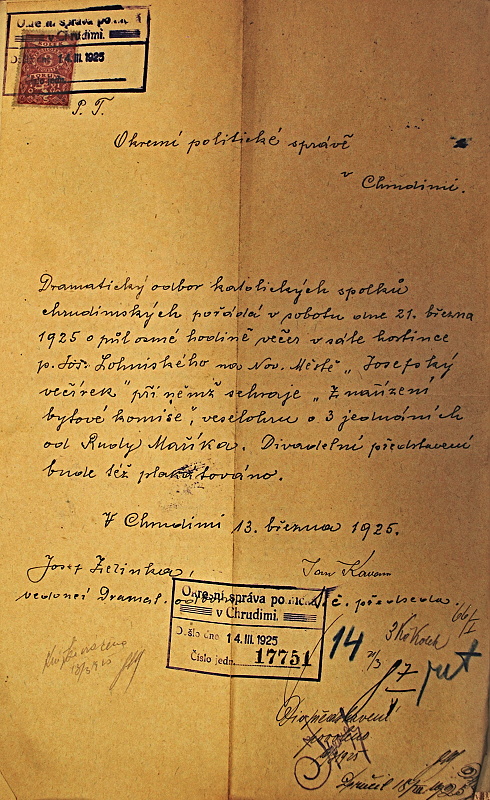 Okresní správa politická
v Chrudimi.
Došlo dne 14. III. 1925
P. T.
Okresní politické správě
v
Chrudimi.
Dramatický odbor katolických spolků
chrudimských pořádá v sobotu dne 21. března
1925 o půl osmé hodině večer v sále hostince
p. Jos. Lohniského na Nov. Městě „Josefský
večírek" při němž sehraje „Z nařízení
bytové komise", veselohru o 3 jednáních
od Rudy Maříka. Divadelní představení
bude též plakátováno.
V Chrudimi 13. března 1925.
Josef Zelinka,
Jan Kavan
vedoucí Dramat.
č. předseda.
Okresní správa politická
v Chrudimi.
Došlo dne 14. III. 1925
Číslo jedn. 17751
14
21/3
7
Div. představení
povoleno